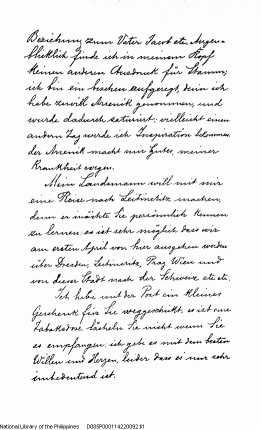 Beziehung zum Vater Jacob etc. Augen-
blicklich finde ich in meinem Kopf
keinen anderen Ausdruck für Stamm;
ich bin ein bischen aufgeregt, denn ich
habe zuviel Arsenik genommen, und
werde dadurch saturirt; vielleicht einen
andern Tag werde ich Inspiration bekommen.
der Arsenik macht mir Gutes, meiner
Krankheit wegen.
Mein Landsmann will mit mir
eine Reise nach Leitmeritz machen,
denn er möchte Sie persönlich kennen
zu lernen; es ist sehr möglich dass wir
am ersten April von hier ausgehen werden
über Dresden, Leitmeritz, Prag Wien und
von dieser Stadt nach der Schweiz etc. etc.
Ich habe mit der Post ein kleines
Geschenk für Sie weggeschickt; es ist eine
Tabaksdose. Lächeln Sie nicht wenn Sie
es empfangen; ich gebe es mit dem besten
Willen und Herzen, leider dass es nur sehr
unbedeutend ist.
National Library of the Philippines D00SP00011422009231